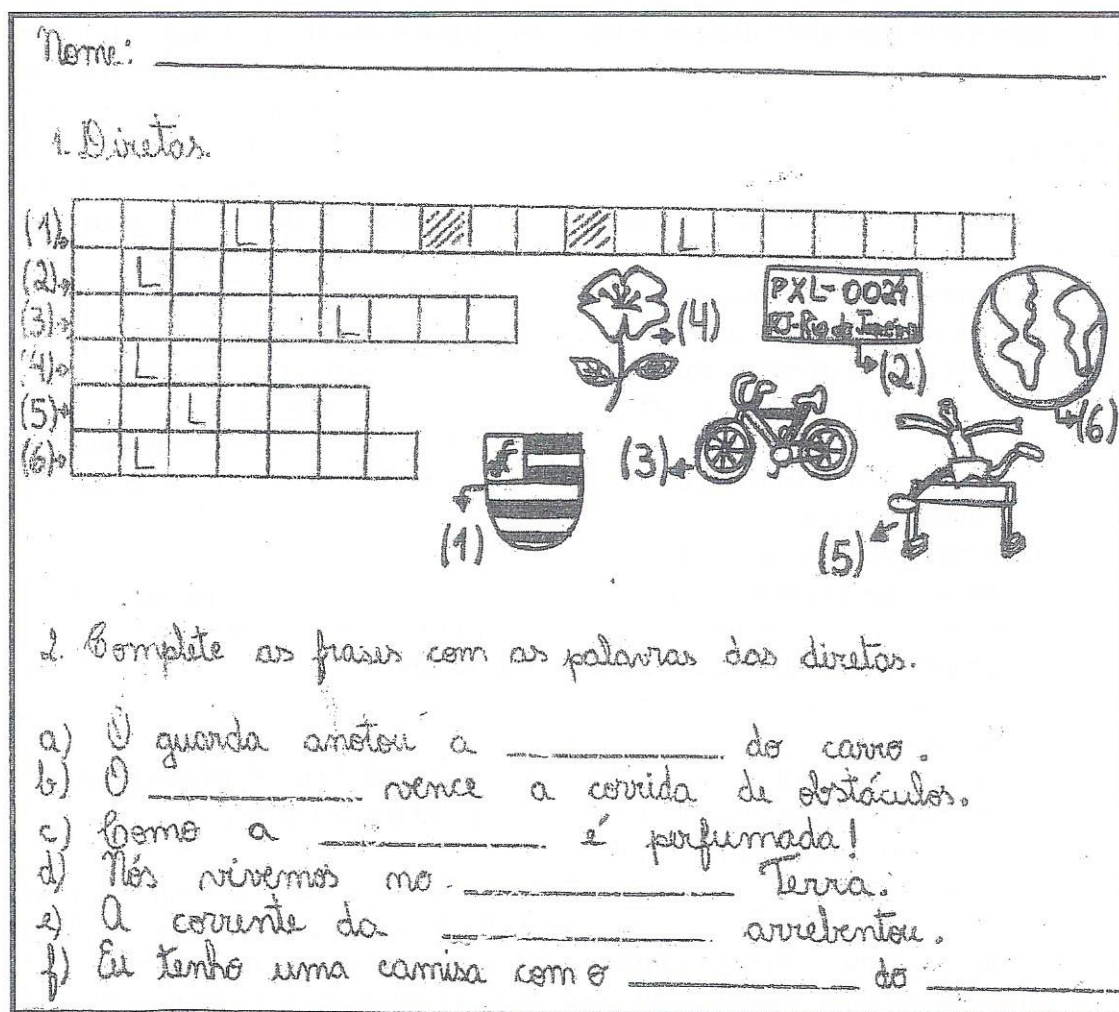 Nome:
1. Diretas.
(1) L L
(2) L
(3) L
(4) L
(5) L
(6) L
(4)
PXL-0024
RJ-Rio de Janeiro
(2)
(6)
(3)
f
(1)
(5)
2. Complete as frases com as palavras das diretas.
a) O guarda anotou a ____________ do carro.
b) O ____________ vence a corrida de obstáculos.
c) Como a ____________ é perfumada!
d) Nós vivemos no ____________ Terra.
e) A corrente da ____________ arrebentou.
f) Eu tenho uma camisa com o ____________ do ____________